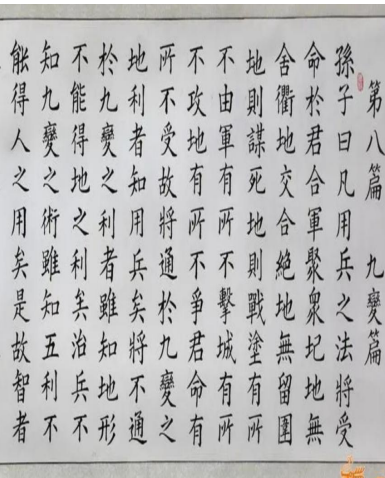 第八篇 九變篇
孫子曰凡用兵之法將受
命於君合軍聚衆圮地無
舍衢地交合絕地無留圍
地則謀死地則戰塗有所
不由軍有所不擊城有所
不攻地有所不爭君命有
所不受故將通於九變之
地利者知用兵矣將不通
於九變之利者雖知地形
不能得地之利矣治兵不
知九變之術雖知五利不
能得人之用矣是故智者